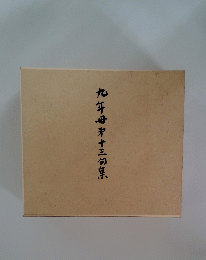 九年母第十三句集